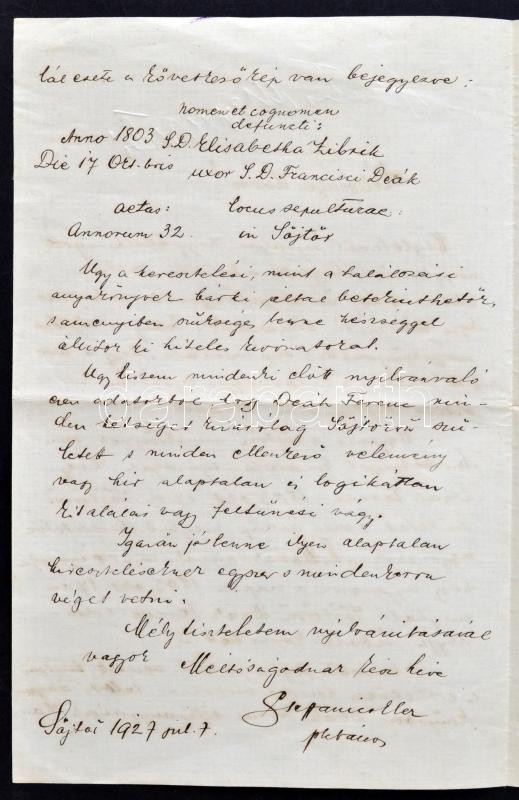 lál esete a következőkép van bejegyezve:
nomen et cognomen
defuncti:
Anno 1803 S.D. Elisabetha Zibrik
Die 17 Oct.bris uxor S.D. Francisci Deák
aetas: locus sepulturae:
Annorum 32. in Söjtör
Ugy a keresztelési, mint a halálozási
anyakönyvek bárki által betekinthetők,
s amenyiben szükséges lenne készséggel
állítok ki hiteles kivonatokat.
Ugy hiszem mindenki előtt nyilvánvaló
ezen adatokból hogy Deák Ferenc min-
den kétséget kizárólag Söjtörön szü-
letett s minden ellenkező vélemény
vagy hír alaptalan és logikátlan
kitalálás vagy feltünési vágy.
Igazán jó lenne ilyen alaptalan
híreszteléseknek egyszer s mindenkorra
véget vetni.
Mély tiszteletem nyilvánításával
vagyok Méltóságodnak kész híve
plebános
Söjtör 1927 jul. 7.
darabanth